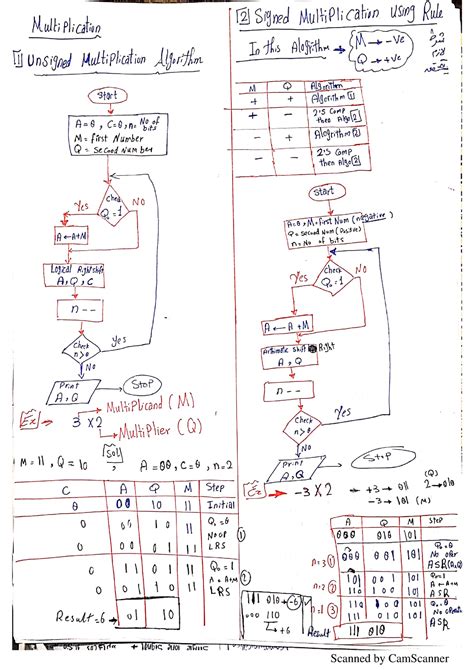 Multiplication
1 Unsigned Multiplication Algorithm
Start
A=0, C=0, n= No of bits
M = First Number
Q = Second Number
Check
Q₀=1
Yes
NO
A←A+M
Logical Right Shift
A, Q, C
n--
Check
n>0
Yes
No
Print
A, Q
Stop
Ex
3 X 2
Multiplicand (M)
Multiplier (Q)
Sol
M = 11, Q = 10
A = 00, C = 0, n=2
C A Q M Step
0 00 10 11 Initial
0 00 10 11 Q₀=0
No op
0 00 01 11 LRS
0 11 01 11 Q₀=1
A=A+M
0 01 10 11 LRS
Result=6
2 Signed Multiplication Using Rule
In this Algorithm
M → -Ve
Q → +Ve
M Q Algorithm
+ + Algorithm 1
+ - 2'S Comp
then Algo 2
- + Algorithm 2
- - 2'S Comp
then Algo 2
Start
A=0, M=First Num (negative)
Q = Second Num (Positive)
n= No of bits
Check
Q₀=1
Yes
No
A ← A+M
Arithmetic Shift Right
A, Q
n--
Check
n>0
Yes
No
Print
A, Q
Stop
Ex
-3 X 2
+3 → 011
-3 → 101 (M)
(Q)
2→010
A Q M Step
000 010 101
n=3 1 000 001 101
Q₀=0
No oper
ASR(A,Q)
n=2 2
101 001 101
110 100 101
Q₀=1
A=A+M
ASR
n=1 3
Q₀=0
ASR
Result
111 010
111 010 → -6
+6
Scanned by CamScanner